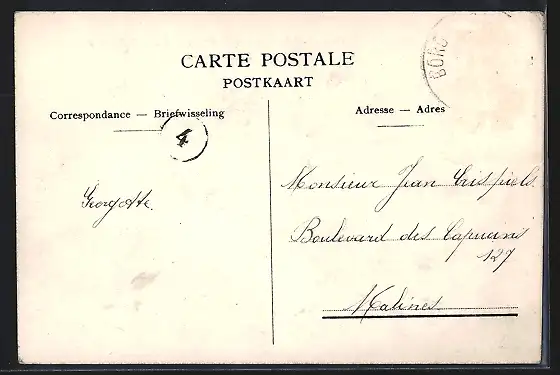 CARTE POSTALE
POSTKAART
Correspondance — Briefwisseling
Adresse — Adres
4
Georgette
Monsieur Jean
Boulevard des Capucins
127
Malines